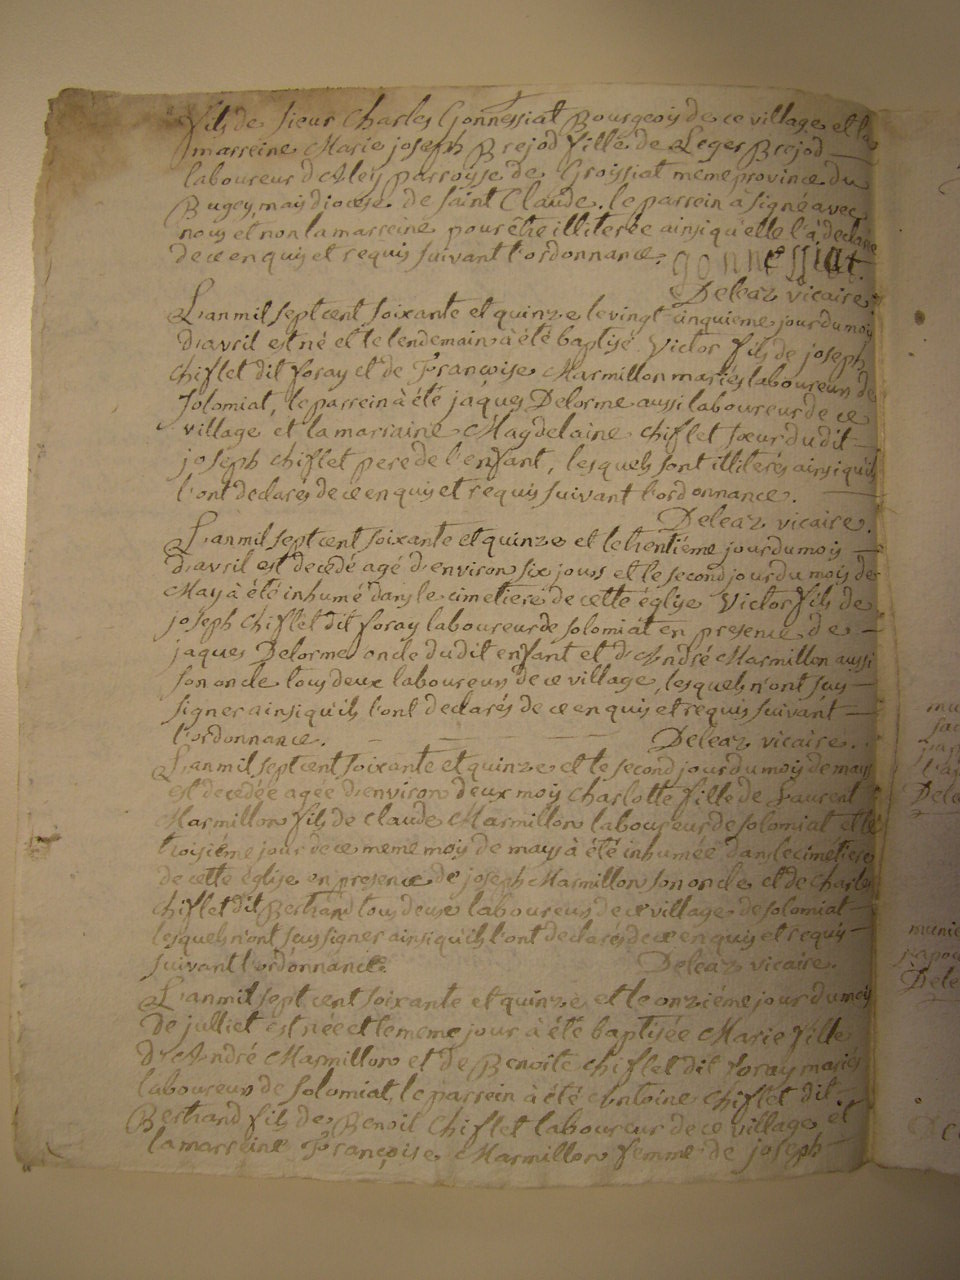 fils de sieur Charles Gonnessiat Bourgeois de ce village et la
marreine Marie joseph Brejod fille de Leger Brejod
laboureur d'Aley parroysse de Groissiat meme province du
Bugey, mais diocese de saint Claude. le parrein à signé avec
nous et non la marreine pour être illiterée ainsi qu'elle l'à declarée
de ce enquis et requis suivant l'ordonnance. gonnessiat.
Deleaz vicaire.
L'an mil sept cent soixante et quinze le vingt cinquieme jour du mois
d'avril est né et le lendemain à été baptisé Victor fils de joseph
chiflet dit foray et de Françoise Marmillon mariés laboureurs de
solomiat, le parrein à été jaques Delorme aussi laboureur de ce
village et la marraine Magdelaine chiflet sœur du dit
joseph chiflet pere de l'enfant, lesquels sont illiterés ainsi qu'ils
l'ont declarés de ce enquis et requis suivant l'ordonnance.
Deleaz vicaire.
L'an mil sept cent soixante et quinze et le trentiéme jour du mois
d'avril est decedé agé d'environ six jours et le second jour du mois de
May à été inhumé dans le cimetiere de cette église Victor fils de
joseph chiflet dit foray laboureur de solomiat en presence de
jaques Delorme oncle du dit enfant et d'André Marmillon aussi
son oncle tous deux laboureurs de ce village, lesquels n'ont sus
signer ainsi qu'ils l'ont declarés de ce enquis et requis suivant
l'ordonnance. Deleaz vicaire.
L'an mil sept cent soixante et quinze et le second jour du mois de mays
est decedée agée d'environ deux mois Charlotte fille de Laurent
Marmillon fils de claude Marmillon laboureur de solomiat et le
troisiéme jour de ce meme mois de mays à été inhumée dans le cimetiere
de cette église en presence de joseph Marmillon son oncle et de Charles
chiflet dit Bertrand tous deux laboureurs de ce village de solomiat
lesquels n'ont sus signer ainsi qu'ils l'ont declarés de ce enquis et requis
suivant l'ordonnance. Deleaz vicaire.
L'an mil sept cent soixante et quinze et le onziéme jour du mois
de julliet est née et le meme jour à été baptisée Marie fille
d'André Marmillon et de Benoite chiflet dit foray mariés
laboureurs de solomiat, le parrein à été Antoine chiflet dit
Bertrand fils de Benoit chiflet laboureur de ce village et
la marreine Françoise Marmillon femme de joseph